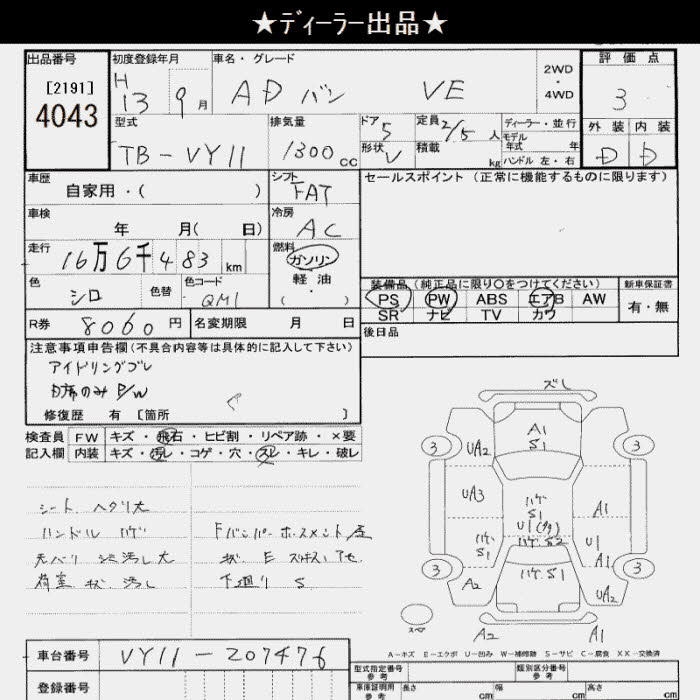 ★ディーラー出品★
出品番号 初度登録年月 車名・グレード 2WD・4WD 評価点
[2191] H 13 9月 AD バン VE 3
4043
型式 排気量 ドア 5 定員 2/5 人 ディーラー・並行 外装 内装
TB-VY11 1300cc 形状 V 積載 kg モデル年式 年 ハンドル 左・右 D D
車歴 シフト セールスポイント (正常に機能するものに限ります)
自家用・( ) FAT
車検 冷房
年 月( 日) AC
走行 燃料
16万6千483 km ガソリン
軽油
( )
色 色替 色コード 装備品 (純正品に限り○をつけてください) 新車保証書
シロ QM1 PS PW ABS エアB AW 有・無
SR ナビ TV カワ
R券 8060円 名変期限 月 日 後日品
注意事項申告欄(不具合内容等は具体的に記入して下さい)
アイドリングブレ
D席のみ P/W
修復歴 有 [箇所 ]
検査員 FW キズ・飛石・ヒビ割・リペア跡・×要
記入欄 内装 キズ・汚レ・コゲ・穴・スレ・キレ・破レ
シート ヘタリ大
ハンドル ハゲ Fバンパー
汚し大
荷室 キズ 汚し 下廻り S
ズレ
A1
S1
3 UA2 3
UA3 ハゲ A1
S1
U1
ハゲ ハゲ S2 U1
S1 A1
3 ハゲ S1 3
A2 UA2
スペア A2 A1
A-キズ E-エクボ U-凹み W-補修跡 S-サビ C-腐食 XX-交換済
車台番号 VY11-207476
型式指定番号 参考 類別区分番号 参考
登録番号
車庫証明用 参考 長さ cm 幅 cm 高さ cm